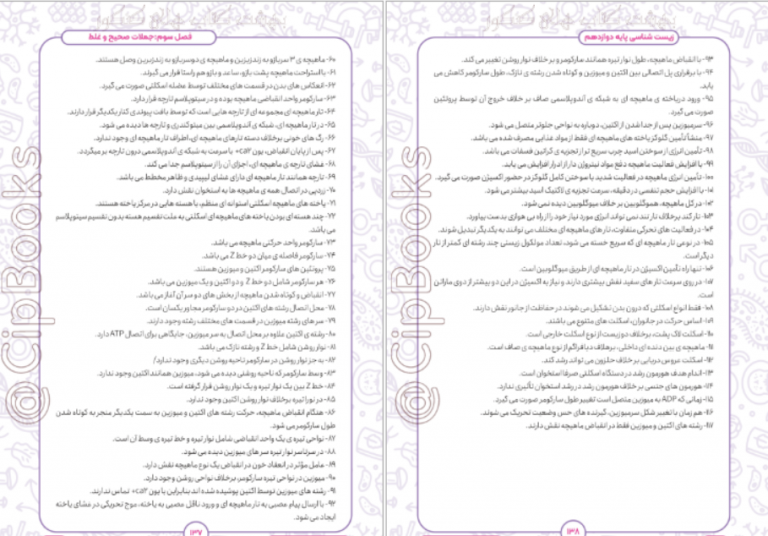 زیست شناسی پایه دوازدهم
۹۳- با انقباض ماهیچه، طول نوار تیره همانند سارکومر و برخلاف نوار روشن تغییر می کند.
۹۴- با برقراری پل اتصالی بین اکتین و میوزین و کوتاه شدن رشته ی نازک، طول سارکومر کاهش می
یابد.
۹۵- ورود دریاخته ی ماهیچه ای به شبکه ی آندوپلاسمی صاف بر خلاف خروج آن توسط پروتئین
صورت می گیرد.
۹۶- سر میوزین پس از جدا شدن از اکتین، دوباره به نواحی جلوتر متصل می شود.
۹۷- منشأ تأمین گلوکز یاخته های ماهیچه ای فقط از مواد غذایی مصرف شده می باشد.
۹۸- تأمین انرژی از سوختن اسید چرب سریع تر از تجزیه ی کراتین فسفات می باشد.
۹۹- با افزایش فعالیت ماهیچه دفع مواد نیتروژن دار از ادرار افزایش می یابد.
۱۰۰- تأمین انرژی ماهیچه در فعالیت شدید با سوختن کامل گلوکز در حضور اکسیژن صورت می گیرد.
۱۰۱- با افزایش حجم تنفسی در دقیقه، سرعت تجزیه ی لاکتیک اسید بیشتر می شود.
۱۰۲- در کل ماهیچه، هموگلوبین بر خلاف میوگلوبین دیده نمی شود.
۱۰۳- تار کند برخلاف تار تند نمی تواند انرژی مورد نیاز خود را از راه بی هوازی بدست بیاورد.
۱۰۴- در فعالیت های تحرکی متفاوت، تار های ماهیچه ای مختلف می توانند به یکدیگر تبدیل شوند.
۱۰۵- در نوعی تار ماهیچه ای که سریع خسته می شود، تعداد مولکول زیستی چند رشته ای کمتر از تار
دیگر است.
۱۰۶- تنها راه تأمین اکسیژن در تار ماهیچه ای از طریق میوگلوبین است.
۱۰۷- در دوی سرعت تار های سفید نقش بیشتری دارند و نیاز به اکسیژن در این دو بیشتر از دوی ماراتن
است.
۱۰۸- فقط انواع اسکلتی که درون بدن تشکیل می شوند در حفاظت از جانور نقش دارند.
۱۰۹- اساس حرکت در جانوران، اسکلت های متنوع می باشند.
۱۱۰- اسکلت لاک پشت، برخلاف دوزیست از نوع اسکلت خارجی است.
۱۱۱- ماهیچه ی بین دنده ای داخلی، برخلاف دیافراگم از نوع ماهیچه ی صاف است.
۱۱۲- اسکلت عروس دریایی بر خلاف حلزون می تواند رشد کند.
۱۱۳- اندام هدف هورمون رشد در دستگاه اسکلتی صرفا استخوان است.
۱۱۴- هورمون های جنسی بر خلاف هورمون رشد در رشد استخوان تأثیری ندارد.
۱۱۵- زمانی که ADP به میوزین متصل است تغییر طول سارکومر صورت می گیرد.
۱۱۶- هم زمان با تغییر شکل سر میوزین، گیرنده های حس وضعیت تحریک می شوند.
۱۱۷- رشته های اکتین و میوزین فقط در انقباض ماهیچه نقش دارند.
۱۳۸
فصل سوم: جملات صحیح و غلط
۶۰- ماهیچه ی ۳ سربازو به زندزیرین و ماهیچه ی دوسربازو به زندزبرین وصل هستند.
۶۱- با استراحت ماهیچه پشت بازو، ساعد و بازو هم راستا قرار می گیرند.
۶۲- انعکاس های بدن در قسمت های مختلف توسط عضله اسکلتی صورت می گیرد.
۶۳- سارکومر واحد انقباضی ماهیچه بوده و در سیتوپلاسم تارچه قرار دارد.
۶۴- تار ماهیچه ای مجموعه ای از تارچه هایی است که توسط بافت پیوندی کنار یکدیگر قرار دارند.
۶۵- در تار ماهیچه ای، شبکه ی آندوپلاسمی بین میتوکندری و تارچه ها دیده می شود.
۶۶- رگ های خونی برخلاف دسته تارهای ماهیچه ای، اطراف تار ماهیچه ای وجود ندارد.
۶۷- پس از پایان انقباض، یون ca²+ با سرعت به شبکه ی آندوپلاسمی درون تارچه بر میگردد.
۶۸- غشای تارچه ی ماهیچه ای، اجزای آن را از سیتوپلاسم جدا می کند.
۶۹- تارچه همانند تار ماهیچه ای دارای غشای لیپیدی و ظاهر مخطط می باشد.
۷۰- زردپی در اتصال همه ی ماهیچه ها به استخوان نقش دارد.
۷۱- یاخته های ماهیچه اسکلتی استوانه ای منظم، با هسته هایی در مرکز یاخته هستند.
۷۲- چند هسته ای بودن یاخته های ماهیچه ای اسکلتی به علت تقسیم هسته بدون تقسیم سیتوپلاسم
می باشد.
۷۳- سارکومر واحد حرکتی ماهیچه می باشد.
۷۴- سارکومر فاصله ی میان دو خط Z می باشد.
۷۵- پروتئین های سارکومر اکتین و میوزین هستند.
۷۶- هر سارکومر شامل دو خط Z و دو اکتین و یک میوزین می باشد.
۷۷- انقباض و کوتاه شدن ماهیچه از بخش های دو سر آن آغاز می باشد.
۷۸- محل اتصال رشته های اکتین در دو سارکومر مجاور یکسان است.
۷۹- سر های رشته میوزین در قسمت های مختلف رشته وجود دارند.
۸۰- رشته ی اکتین علاوه بر محل اتصال به سر میوزین، جایگاهی برای اتصال ATP دارد.
۸۱- نوار روشن شامل خط Z و رشته نازک می باشد.
۸۲- به جز نوار روشن در سارکومر ناحیه روشن دیگری وجود ندارد!
۸۳- وسط سارکومر که ناحیه روشنی دیده می شود، میوزین همانند اکتین وجود ندارد.
۸۴- خط Z بین یک نوار تیره و یک نوار روشن قرار گرفته است.
۸۵- در نورا تیره برخلاف نوار روشن اکتین وجود ندارد.
۸۶- هنگام انقباض ماهیچه، حرکت رشته های اکتین و میوزین به سمت یکدیگر منجر به کوتاه شدن
طول سارکومر می شود.
۸۷- نواحی تیره ی یک واحد انقباضی شامل نوار تیره و خط تیره ی وسط آن است.
۸۸- در سرتاسر نوار تیره سر های میوزین دیده می شود.
۸۹- عامل مؤثر در انعقاد خون در انقباض یک نوع ماهیچه نقش دارد.
۹۰- میوزین در نواحی تیره سارکومر، برخلاف نواحی روشن وجود دارد.
۹۱- رشته های میوزین توسط اکتین پوشیده شده اند بنابراین با یون ca²+ تماس ندارند.
۹۲- با ارسال پیام عصبی به تار ماهیچه ای و ورود ناقل عصبی به یاخته، موج تحریکی در غشای یاخته
ایجاد می شود.
۱۳۷
@CipBooks
@CipBooks